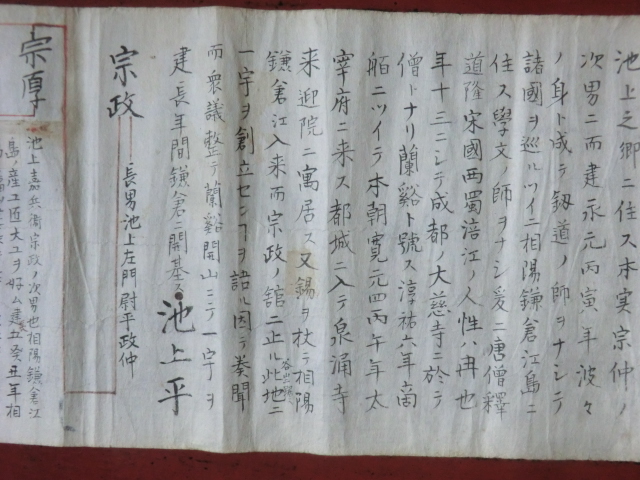 池上之郷ニ住ス本実宗仲ノ
次男ニ而建永元丙寅年波々
ノ身ト成テ釼道ノ師ヲナシテ
諸國ヲ巡ルツイニ相陽鎌倉江島ニ
住ス學文ノ師ヲナシ爰ニ唐僧釋
道隆宋國西蜀涪江ノ人性ハ冉也
年十三ニシテ成都ノ大慈寺ニ於テ
僧トナリ蘭谿ト號ス淳祐六年商
舶ニツイテ本朝寛元四丙午年太
宰府ニ来ス都城ニ入テ泉涌寺
来迎院ニ寓居ス又錫ヲ杖テ相陽
鎌倉江入来而宗政ノ舘ニ止ル此地ニ
一宇ヲ創立センヿヲ語ル因テ奏聞
而衆議整テ蘭谿開山ニテ一宇ヲ
建長年間鎌倉ニ開基ス
池上平
宗政
長男池上左門尉平政仲
宗厚
池上嘉兵衞宗政ノ次男也相陽鎌倉江
島ノ産工匠大工ヲ好ム建五癸丑年相